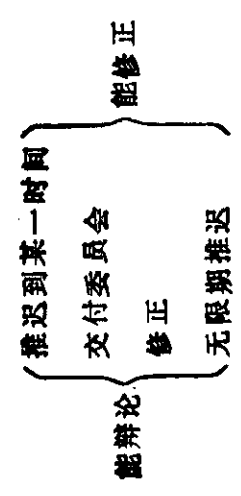 能辩论
推迟到某一时间
交付委员会
修正
无限期推迟
能修正